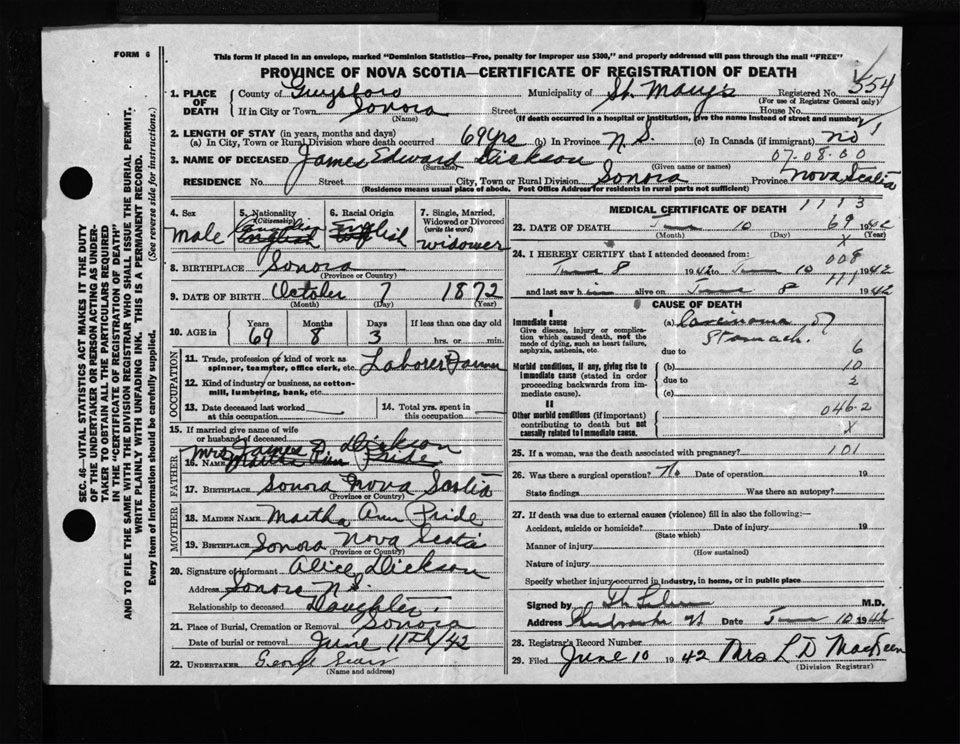 FORM 6
This form if placed in an envelope, marked "Dominion Statistics—Free, penalty for improper use $300," and properly addressed will pass through the mail "FREE"
PROVINCE OF NOVA SCOTIA—CERTIFICATE OF REGISTRATION OF DEATH
554
1. PLACE OF DEATH County of Guysboro Municipality of St. Mary's Registered No.
(For use of Registrar General only)
If in City or Town Sonora Street House No.
(Name) (If death occurred in a hospital or institution, give the name instead of street and number)
2. LENGTH OF STAY (in years, months and days)
(a) In City, Town or Rural Division where death occurred 69 yrs (b) in Province N.S. (c) in Canada (if immigrant) no
07.08.00
3. NAME OF DECEASED James Edward Dickson
(Surname) (Given name or names)
RESIDENCE No. Street City, Town or Rural Division Sonora Province Nova Scotia
(Residence means usual place of abode. Post Office Address for residents in rural parts not sufficient)
4. Sex Male
5. Nationality (Citizenship) English
6. Racial Origin English
7. Single, Married, Widowed or Divorced (write the word) widower
8. BIRTHPLACE Sonora
(Province or Country)
9. DATE OF BIRTH October 7 1872
(Month) (Day) (Year)
10. AGE in Years Months Days If less than one day old
69 8 3 hrs. or min.
OCCUPATION
11. Trade, profession or kind of work as spinner, teamster, office clerk, etc. Laborer Farmer
12. Kind of industry or business, as cotton-mill, lumbering, bank, etc.
13. Date deceased last worked at this occupation
14. Total yrs. spent in this occupation
15. If married give name of wife or husband of deceased
Mrs James D Dickson
FATHER
16. Name Martha Ann Pride
17. Birthplace Sonora Nova Scotia
(Province or Country)
MOTHER
18. Maiden Name Martha Ann Pride
19. Birthplace Sonora Nova Scotia
(Province or Country)
20. Signature of informant Alice Dickson
Address Sonora N.S.
Relationship to deceased Daughter.
21. Place of Burial, Cremation or Removal Sonora
Date of burial or removal June 11th/42
22. UNDERTAKER George Sears
(Name and address)
MEDICAL CERTIFICATE OF DEATH 1113
23. DATE OF DEATH June 10 69 1942
(Month) (Day) (Year)
X
24. I HEREBY CERTIFY that I attended deceased from: 008
June 8 1942 to June 10 1942
111
and last saw him alive on June 8 1942
CAUSE OF DEATH
I
Immediate cause
Give disease, injury or complication which caused death, not the mode of dying, such as heart failure, asphyxia, asthenia, etc.
(a) Carcinoma of
Stomach.
due to 6
Morbid conditions, if any, giving rise to immediate cause (stated in order proceeding backwards from immediate cause).
(b) 10
due to
(c)
II
Other morbid conditions (if important) contributing to death but not causally related to immediate cause.
046.2
X
25. If a woman, was the death associated with pregnancy? 101
26. Was there a surgical operation? No Date of operation 19
State findings Was there an autopsy?
27. If death was due to external causes (violence) fill in also the following:—
Accident, suicide or homicide? Date of injury 19
(State which)
Manner of injury
(How sustained)
Nature of injury
Specify whether injury occurred in industry, in home, or in public place
Signed by M.D.
Address Date June 10 1942
28. Registrar's Record Number
29. Filed June 10 1942 Mrs L D MacKeen
(Division Registrar)
SEC. 46—VITAL STATISTICS ACT MAKES IT THE DUTY
OF THE UNDERTAKER OR PERSON ACTING AS UNDER-
TAKER TO OBTAIN ALL THE PARTICULARS REQUIRED
IN THE "CERTIFICATE OF REGISTRATION OF DEATH"
AND TO FILE THE SAME WITH THE DIVISION REGISTRAR WHO SHALL ISSUE THE BURIAL PERMIT.
WRITE PLAINLY WITH UNFADING INK. THIS IS A PERMANENT RECORD.
Every item of information should be carefully supplied. (See reverse side for instructions.)